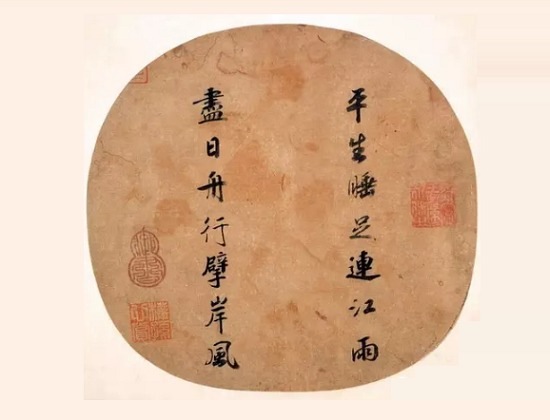 平生睡足連江雨
盡日舟行擘岸風